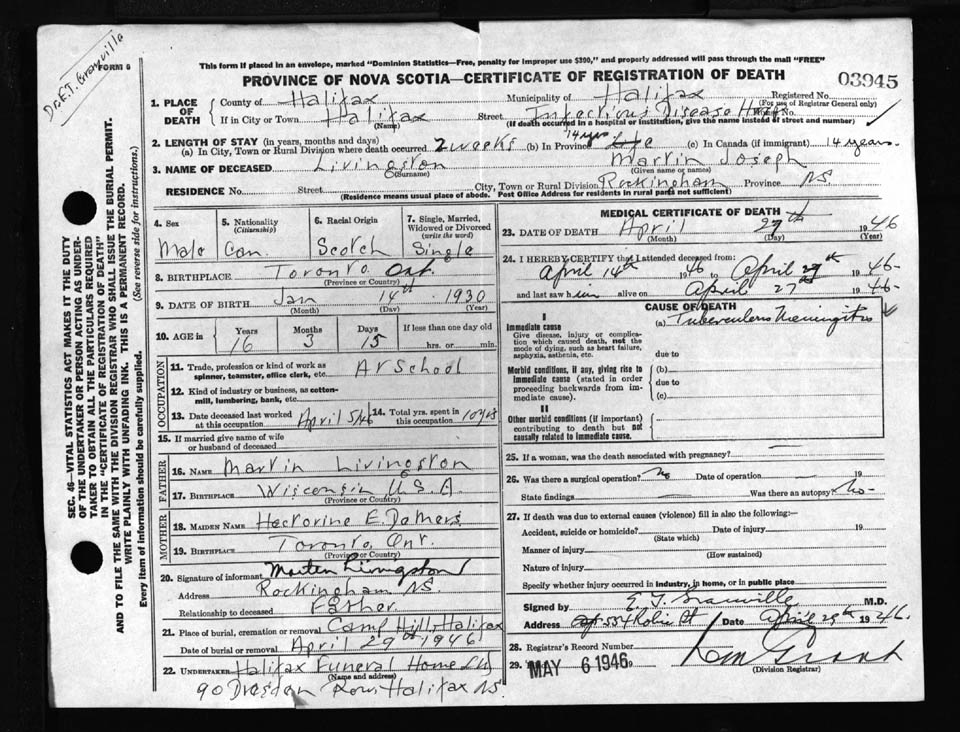 Dr. E.T. Granville
FORM 8
This form if placed in an envelope, marked "Dominion Statistics—Free, penalty for improper use $300," and properly addressed will pass through the mail "FREE"
PROVINCE OF NOVA SCOTIA—CERTIFICATE OF REGISTRATION OF DEATH
03945
1. PLACE OF DEATH County of Halifax Municipality of Halifax Registered No. (For use of Registrar General only)
If in City or Town Halifax (Name) Street Infectious Disease No.
(If death occurred in a hospital or institution, give the name instead of street and number)
2. LENGTH OF STAY (in years, months and days)
(a) In City, Town or Rural Division where death occurred 2 weeks (b) In Province 14 yrs Life (c) In Canada (if immigrant) 14 years.
3. NAME OF DECEASED Livingston (Surname) Martin Joseph (Given name or names)
RESIDENCE No. Street City, Town or Rural Division Rockingham Province N.S.
(Residence means usual place of abode. Post Office Address for residents in rural parts not sufficient)
4. Sex Male
5. Nationality (Citizenship) Can.
6. Racial Origin Scotch
7. Single, Married, Widowed or Divorced (write the word) Single
8. BIRTHPLACE Toronto Ont. (Province or Country)
9. DATE OF BIRTH Jan (Month) 14th (Day) 1930 (Year)
10. AGE in Years 16 Months 3 Days 15 If less than one day old hrs. or min.
OCCUPATION
11. Trade, profession or kind of work as spinner, teamster, office clerk, etc. At School
12. Kind of industry or business, as cotton-mill, lumbering, bank, etc.
13. Date deceased last worked at this occupation April 5/46 14. Total yrs. spent in this occupation 10 yrs
15. If married give name of wife or husband of deceased
FATHER
16. NAME Martin Livingston
17. BIRTHPLACE Wisconsin U.S.A. (Province or Country)
MOTHER
18. MAIDEN NAME Hectorine E. Demers
19. BIRTHPLACE Toronto, Ont. (Province or Country)
20. Signature of informant Martin Livingston
Address Rockingham N.S.
Relationship to deceased Father
21. Place of burial, cremation or removal Camp Hill, Halifax
Date of burial or removal April 29th 1946
22. UNDERTAKER Halifax Funeral Home Ltd (Name and address)
90 Dresden Row, Halifax N.S.
MEDICAL CERTIFICATE OF DEATH
23. DATE OF DEATH April (Month) 27th (Day) 1946 (Year)
24. I HEREBY CERTIFY that I attended deceased from:
April 14th 1946 to April 27th 1946
and last saw him alive on April 27th 1946
CAUSE OF DEATH
I
Immediate cause
Give disease, injury or complication which caused death, not the mode of dying, such as heart failure, asphyxia, asthenia, etc.
(a) Tuberculous Meningitis
due to
Morbid conditions, if any, giving rise to immediate cause (stated in order proceeding backwards from immediate cause).
(b)
due to
(c)
II
Other morbid conditions (if important) contributing to death but not causally related to immediate cause.
25. If a woman, was the death associated with pregnancy?
26. Was there a surgical operation? No Date of operation 19
State findings Was there an autopsy? No
27. If death was due to external causes (violence) fill in also the following:—
Accident, suicide or homicide? Date of injury 19
(State which)
Manner of injury
(How sustained)
Nature of injury
Specify whether injury occurred in industry, in home, or in public place
Signed by E. T. Granville M.D.
Address 554 Robie St Date April 29th 1946
28. Registrar's Record Number
29. MAY 6 1946 (Division Registrar)
SEC. 46—VITAL STATISTICS ACT MAKES IT THE DUTY OF THE UNDERTAKER OR PERSON ACTING AS UNDERTAKER TO OBTAIN ALL THE PARTICULARS REQUIRED IN THE "CERTIFICATE OF REGISTRATION OF DEATH" AND TO FILE THE SAME WITH THE DIVISION REGISTRAR WHO SHALL ISSUE THE BURIAL PERMIT.
WRITE PLAINLY WITH UNFADING INK. THIS IS A PERMANENT RECORD.
Every item of information should be carefully supplied. (See reverse side for instructions.)